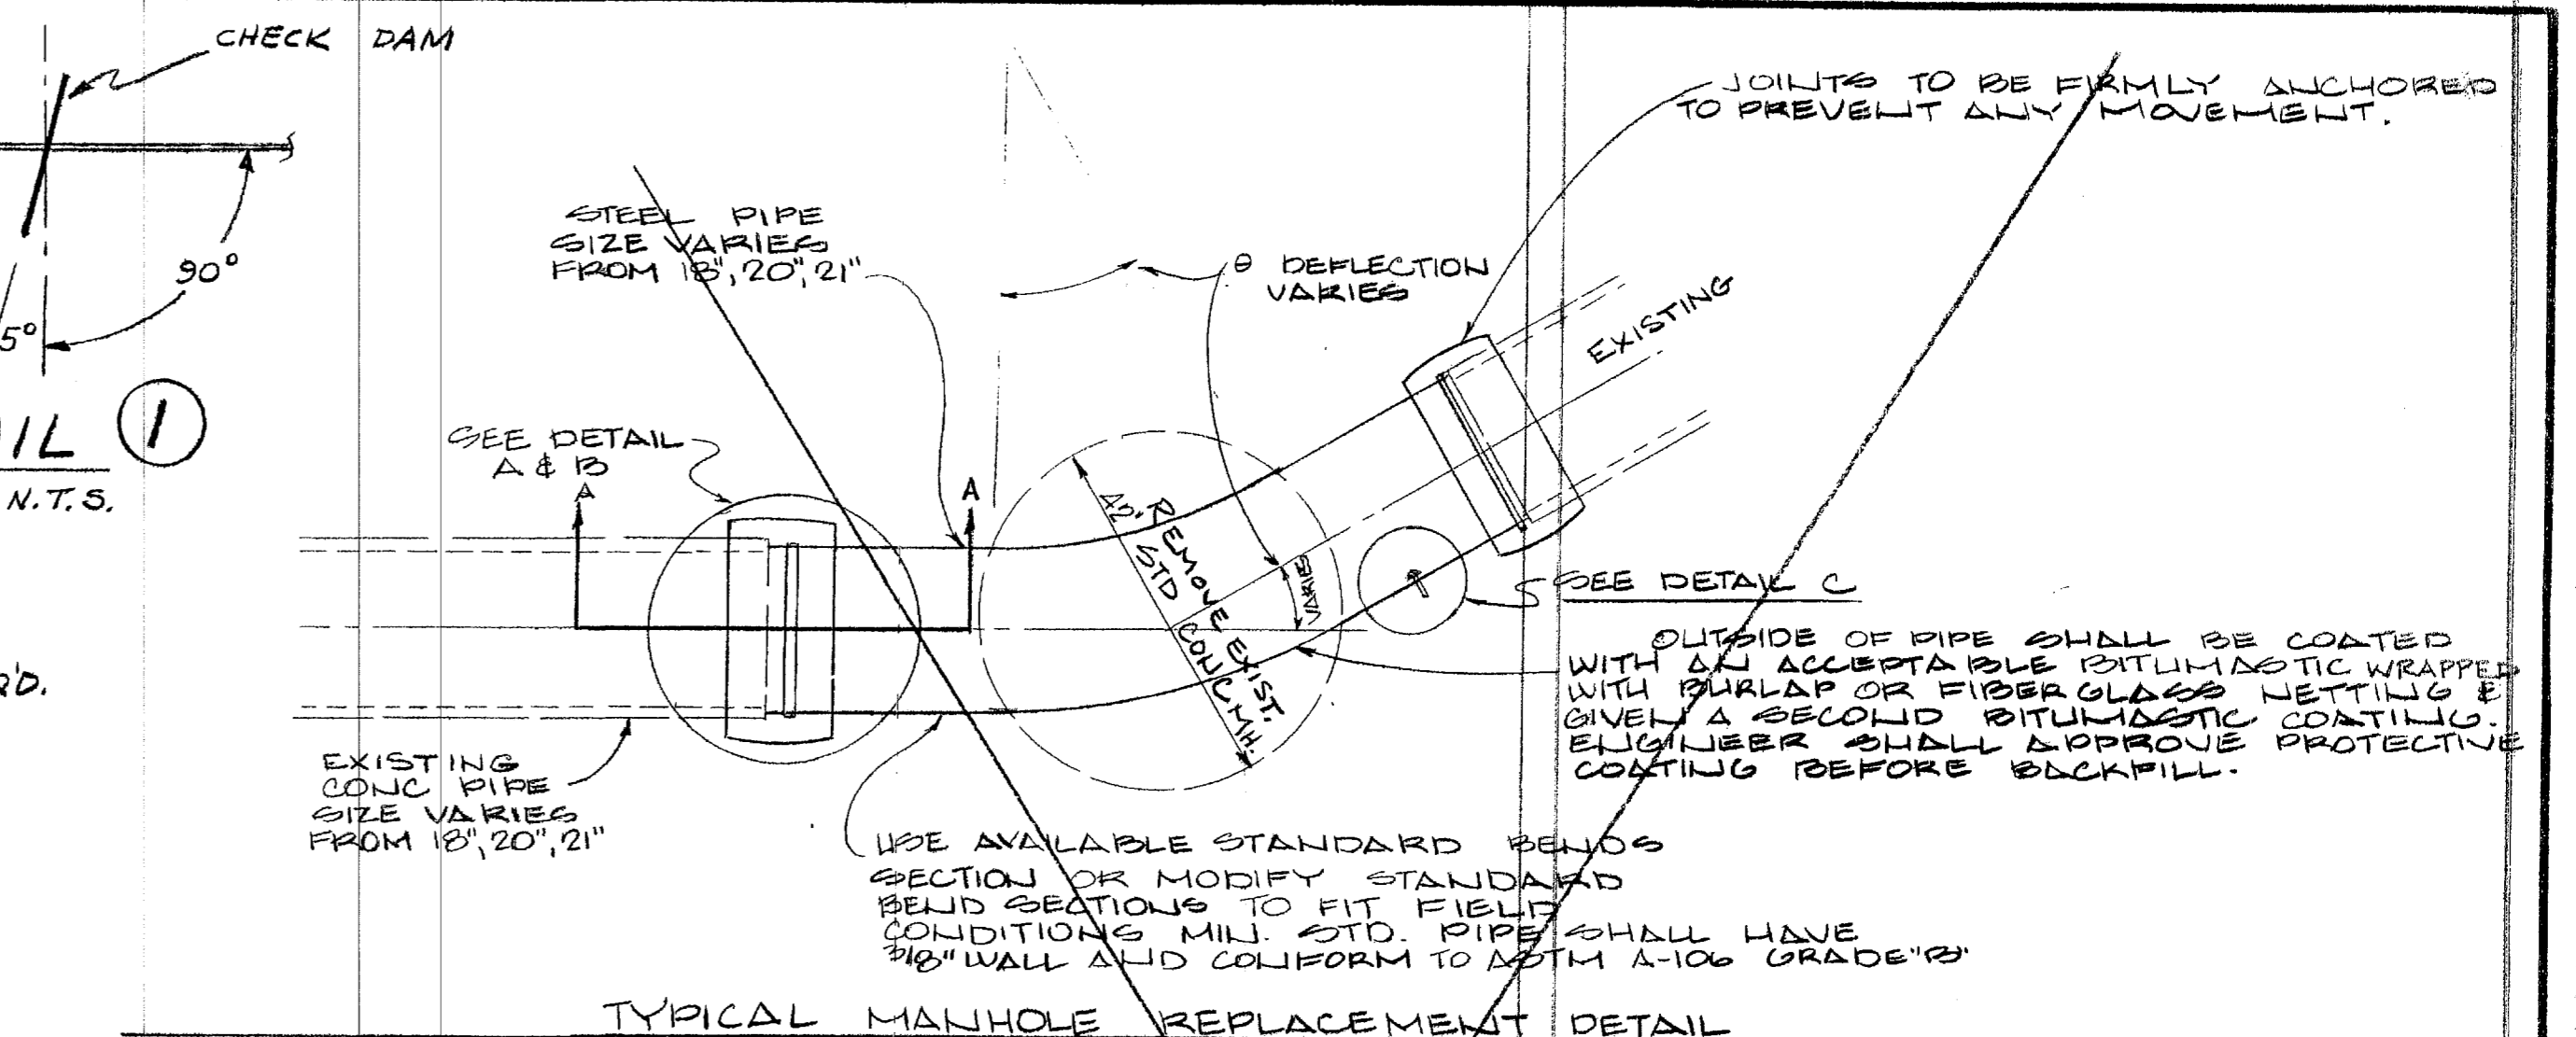 CHECK DAM
90°
5°
IL 1
N.T.S.
JOINTS TO BE FIRMLY ANCHORED
TO PREVENT ANY MOVEMENT.
STEEL PIPE
SIZE VARIES
FROM 18", 20", 21"
θ DEFLECTION
VARIES
EXISTING
SEE DETAIL
A & B
A
A
42"
REMOVE EXIST.
STD CONC MH.
VARIES
SEE DETAIL C
OUTSIDE OF PIPE SHALL BE COATED
WITH AN ACCEPTABLE BITUMASTIC WRAPPED
WITH BURLAP OR FIBER GLASS NETTING &
GIVEN A SECOND BITUMASTIC COATING.
ENGINEER SHALL APPROVE PROTECTIVE
COATING BEFORE BACKFILL.
EXISTING
CONC PIPE
SIZE VARIES
FROM 18", 20", 21"
USE AVAILABLE STANDARD BENDS
SECTION OR MODIFY STANDARD
BEND SECTIONS TO FIT FIELD
CONDITIONS MIN. STD. PIPE SHALL HAVE
3/8" WALL AND CONFORM TO ASTM A-106 GRADE "B"
TYPICAL MANHOLE REPLACEMENT DETAIL